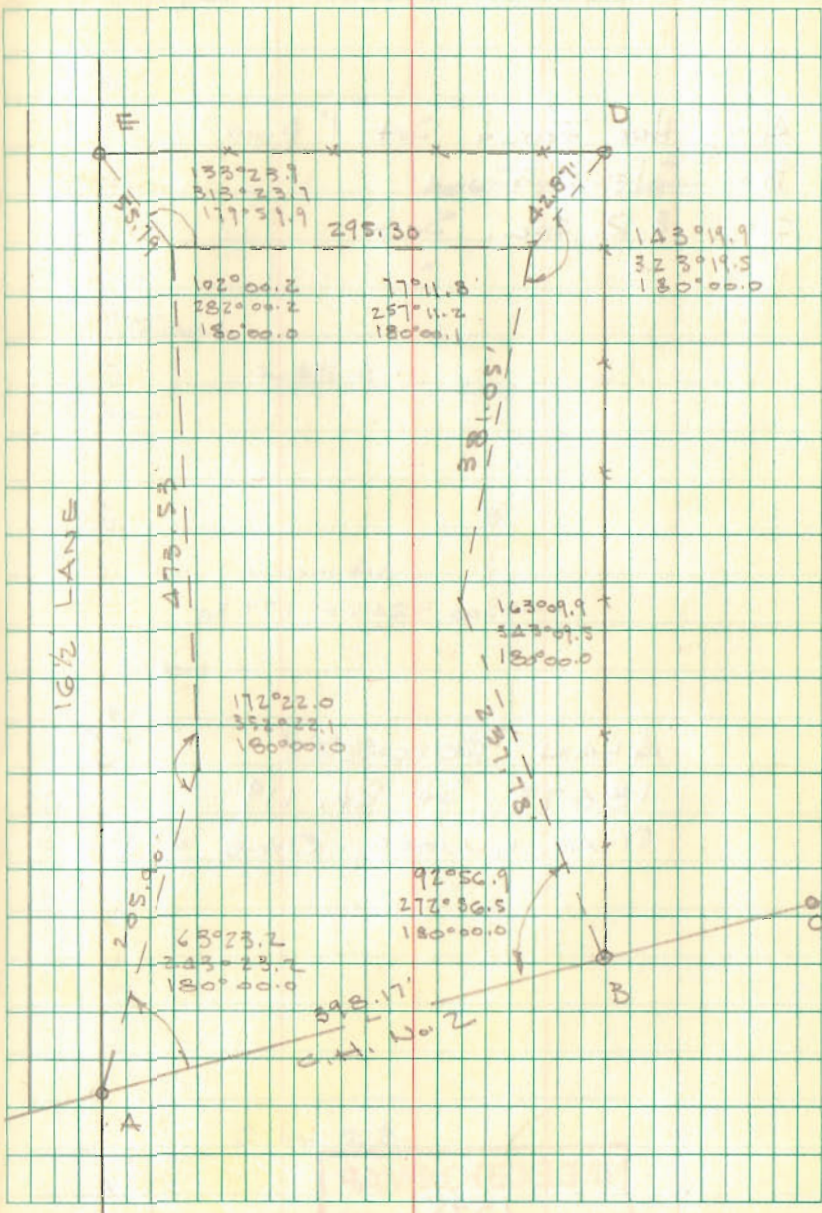 E
D
133°23.9
313°23.7
179°59.9
55.79
42.87'
295.30
143°19.9
323°19.5
180°00.0
102°00.2
282°00.2
180°00.0
77°11.3
257°11.2
180°00.1
381.05'
473.53
16½ LANE
163°09.9
343°09.5
180°00.0
172°22.0
352°22.1
180°00.0
237.78'
205.90
92°56.9
272°56.5
180°00.0
63°23.2
243°23.2
180°00.0
C
B
398.17'
C.H. No. 2
A